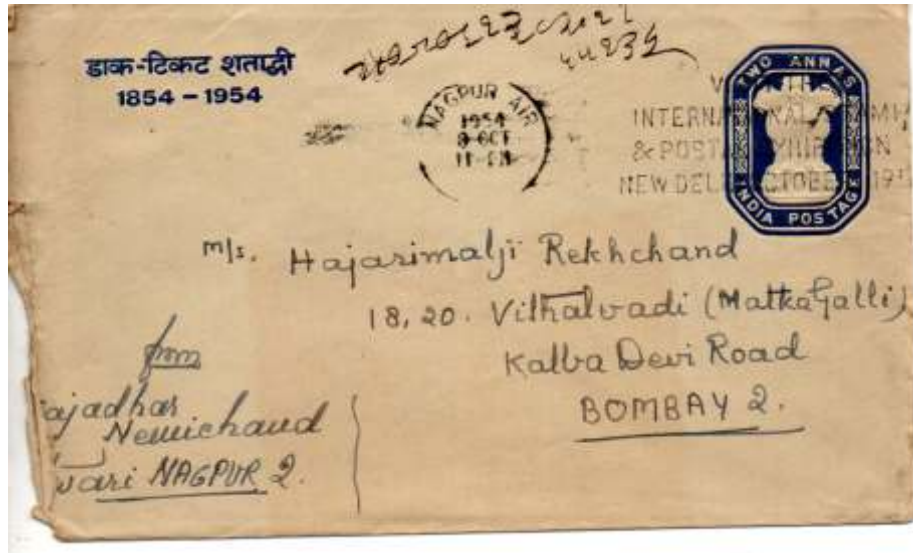 डाक-टिकट शताब्दी
1854 – 1954
NAGPUR AIR
1954
8 OCT
11 PM
INTERNA
& POSTA
NEW DEL CTOBER 19
TWO ANNAS
INDIA POSTAGE
M/s. Hajarimalji Rekhchand
18, 20. Vithalvadi (Matka Galli)
Kalba Devi Road
BOMBAY 2.
from
ajadhar
Nemichand
wari NAGPUR 2.